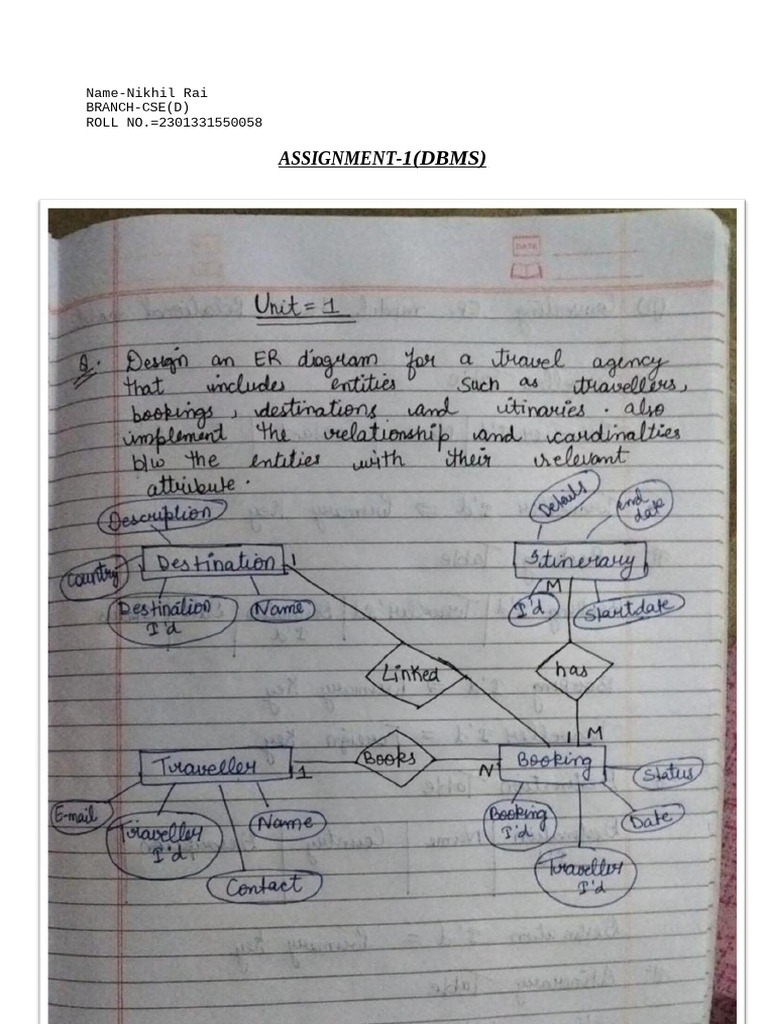 Name-Nikhil Rai
BRANCH-CSE(D)
ROLL NO.=2301331550058
ASSIGNMENT-1(DBMS)
DATE
Unit = 1
Q. Design an ER diagram for a travel agency
that includes entities such as travellers,
bookings, destinations and itinaries. also
implement the relationship and cardinalties
b/w the entities with their relevant
attribute.
Description
Details
end date
Country
Destination 1
Itinerary
M
Destination I'd
Name
I'd
Startdate
Linked
has
1 M
Traveller 1
Books
N Booking
Status
E-mail
Traveller I'd
Name
Booking I'd
Date
Contact
Traveller I'd